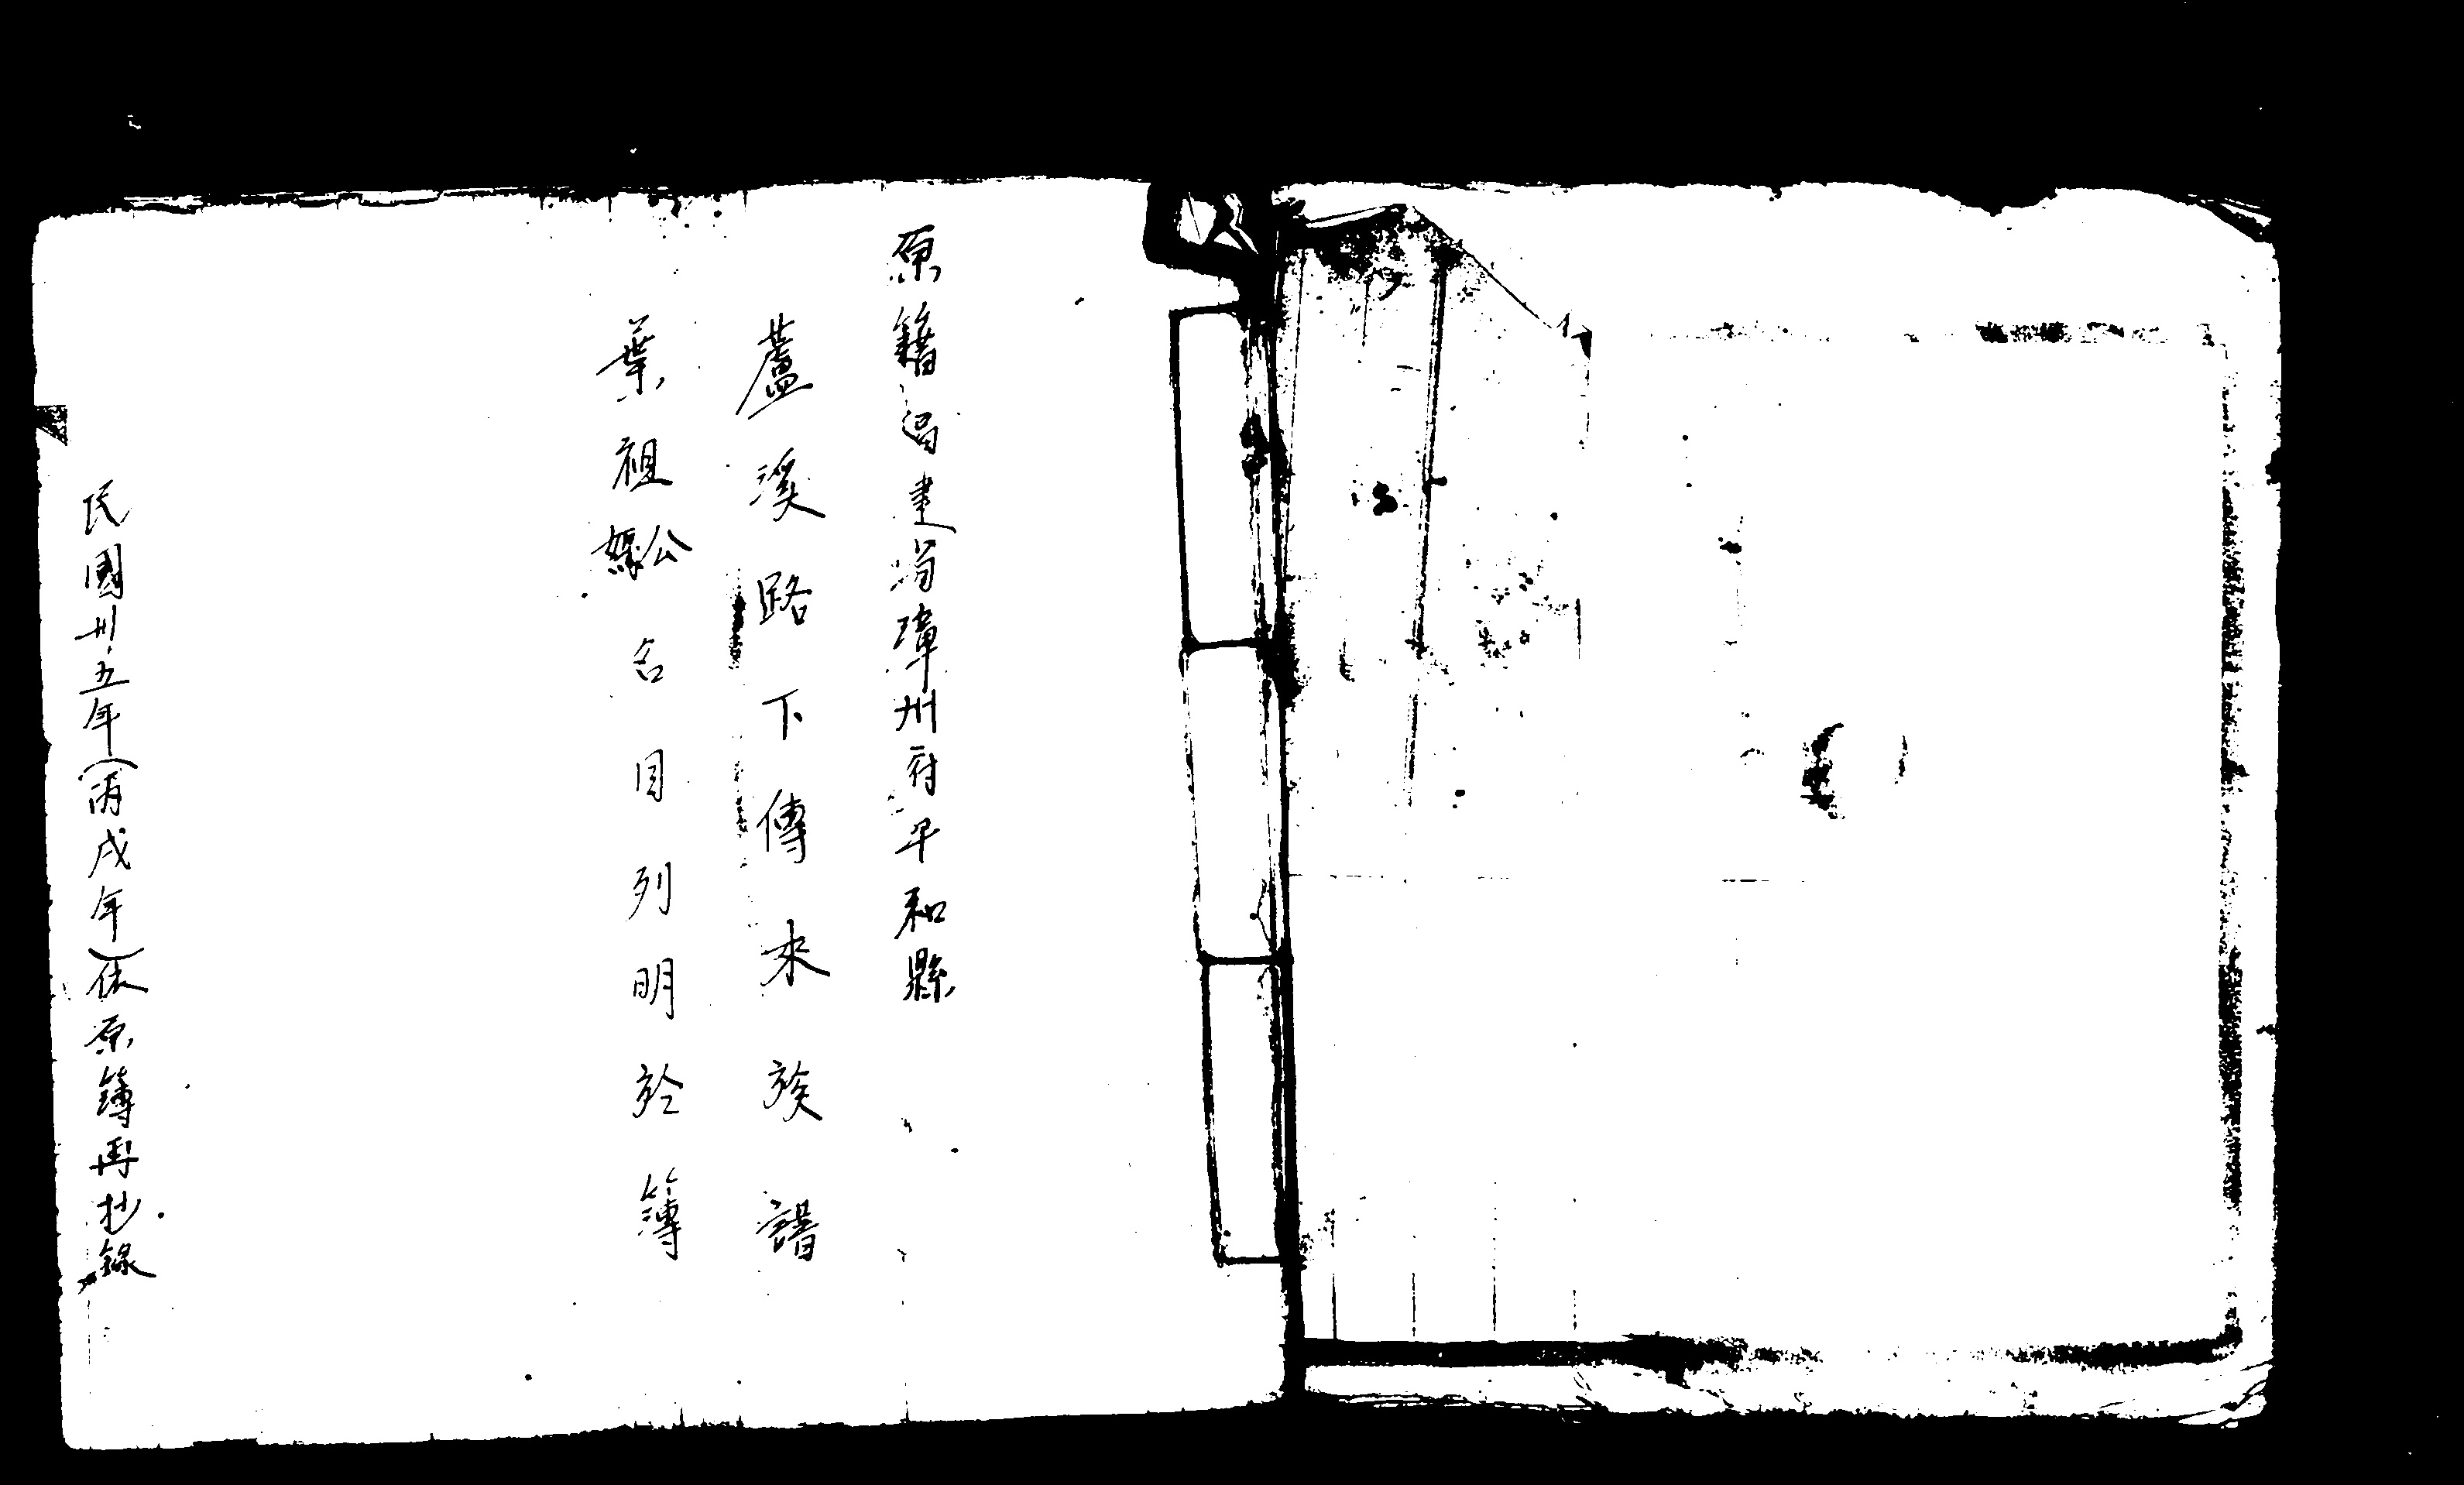 原籍福建省漳州府平和縣
蘆溪路下傳來族譜
葉祖公媽名目列明於簿
民國卅五年(丙戌年)依原簿再抄錄